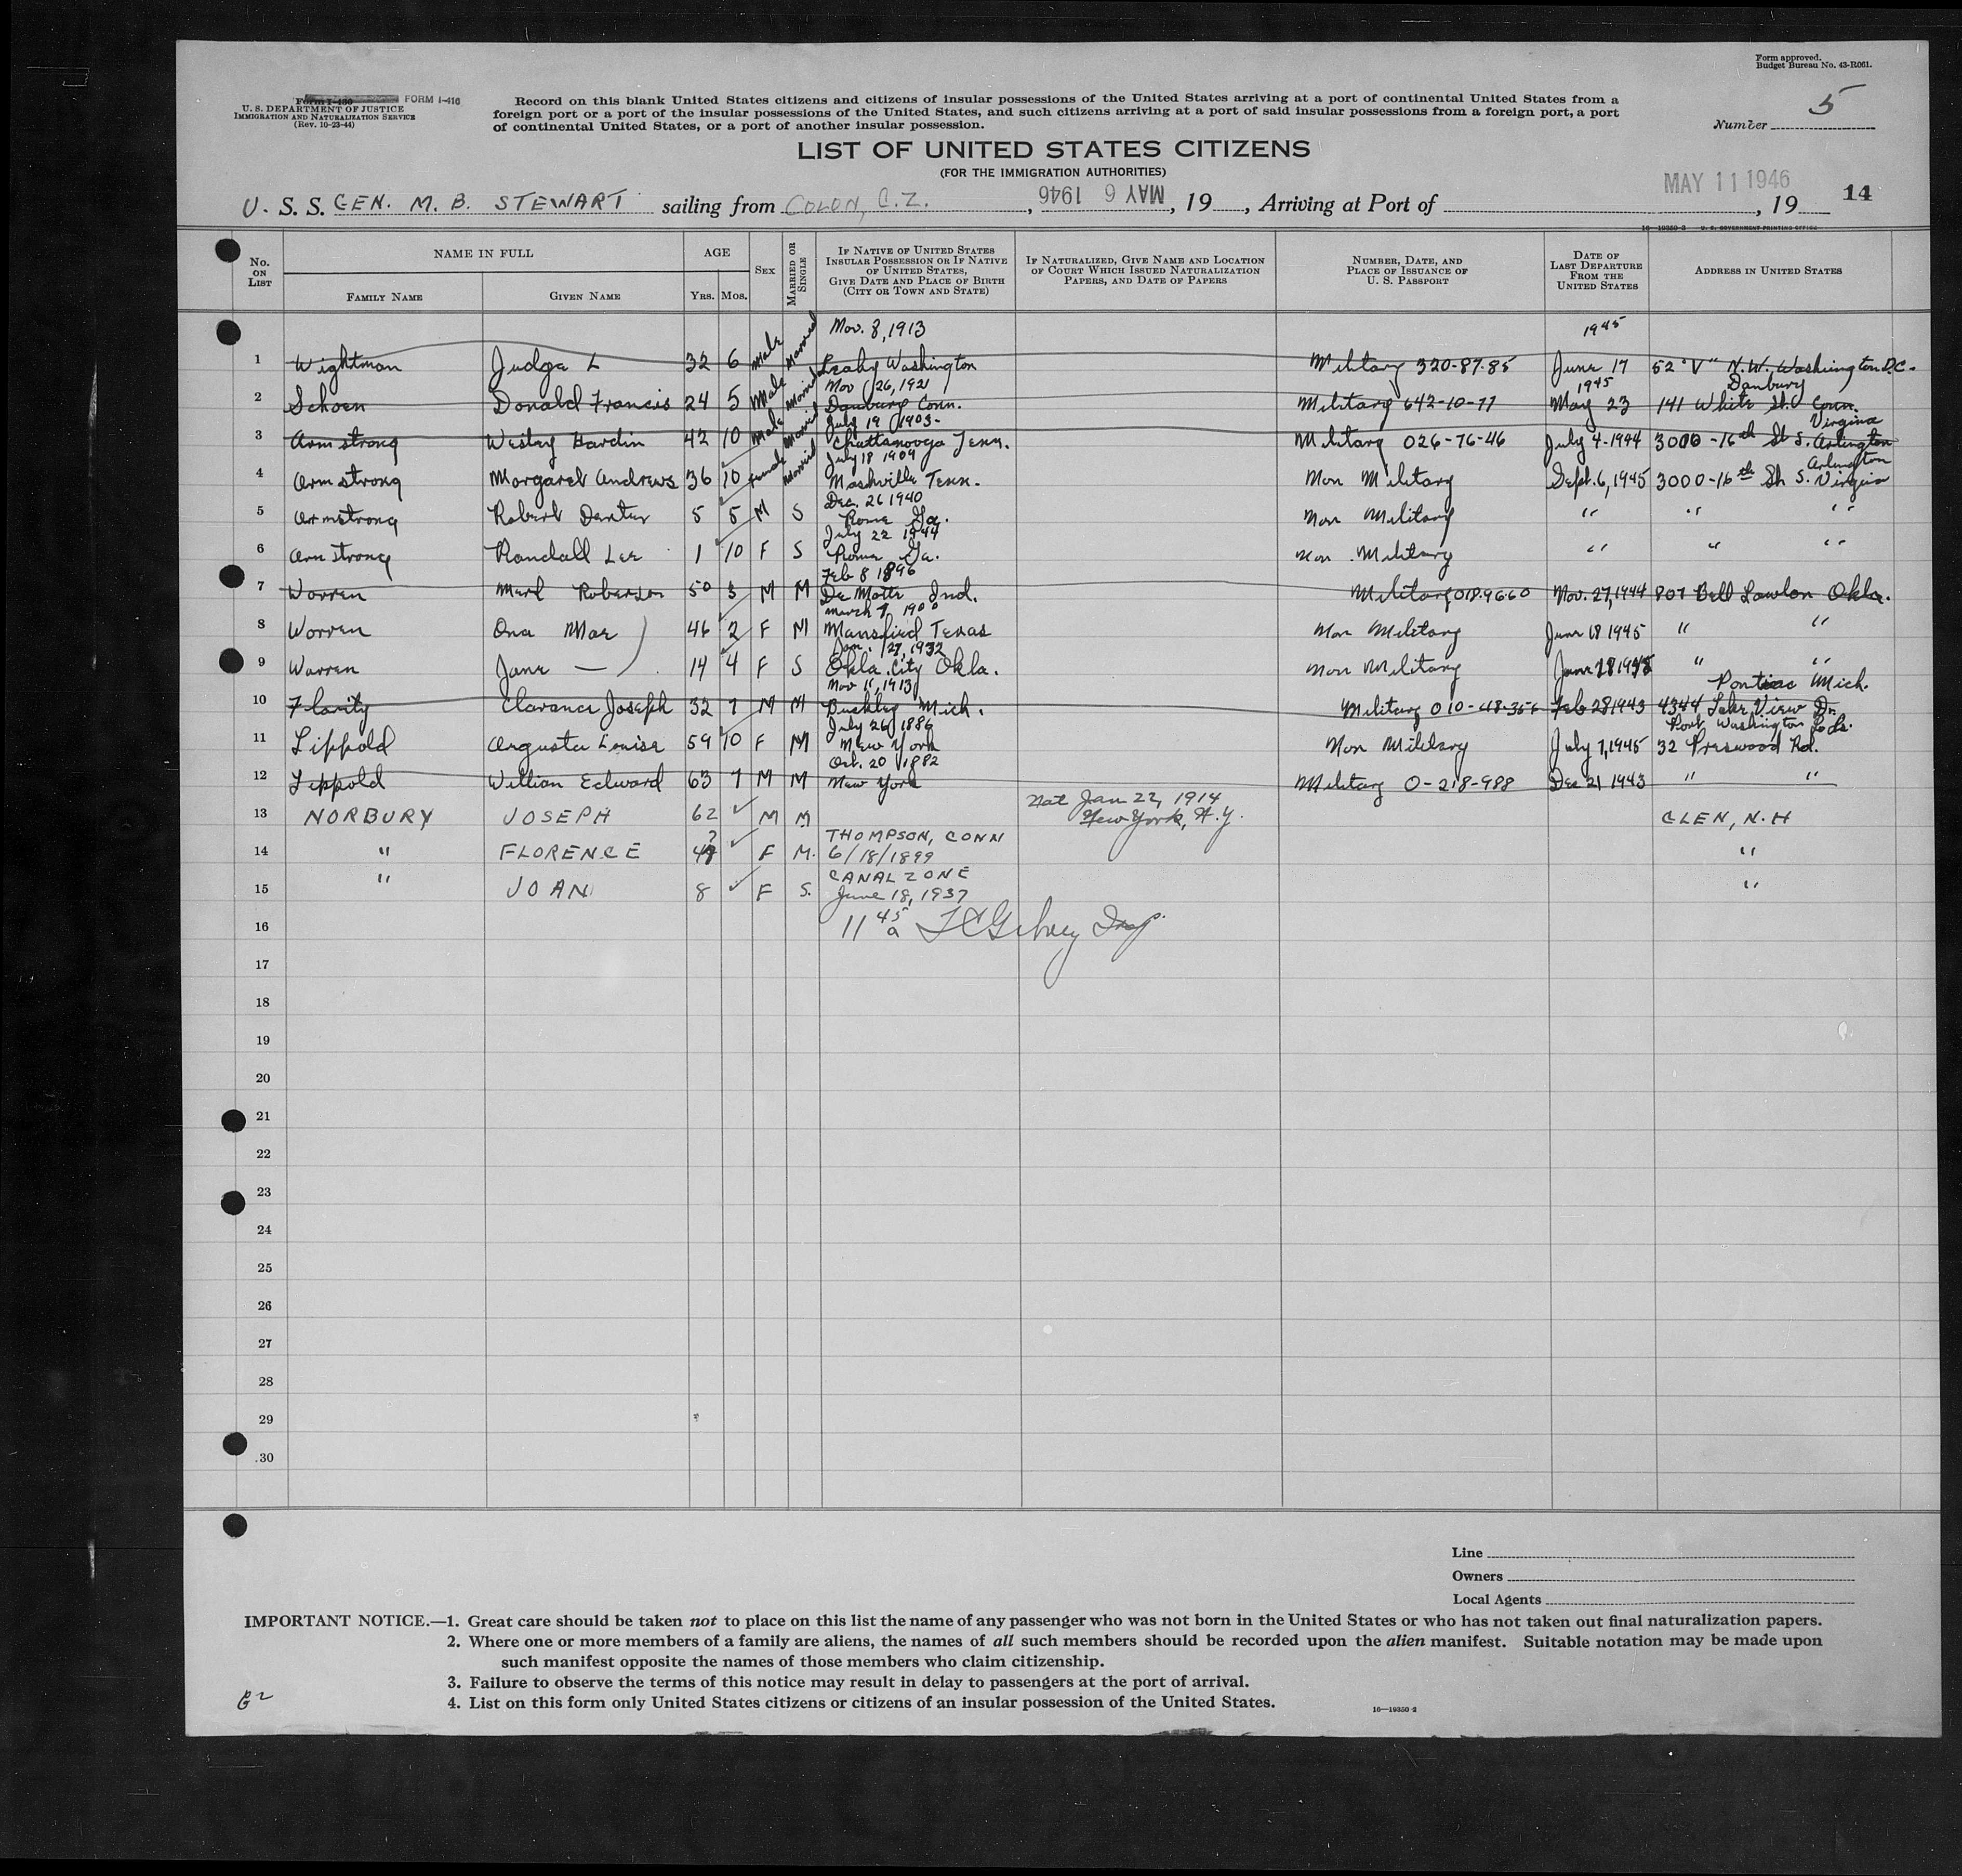 Form approved.
Budget Bureau No. 43-R061.
Form I-430 FORM I-416
U. S. DEPARTMENT OF JUSTICE
IMMIGRATION AND NATURALIZATION SERVICE
(Rev. 10-23-44)
Record on this blank United States citizens and citizens of insular possessions of the United States arriving at a port of continental United States from a
foreign port or a port of the insular possessions of the United States, and such citizens arriving at a port of said insular possessions from a foreign port, a port
of continental United States, or a port of another insular possession.
Number 5
LIST OF UNITED STATES CITIZENS
(FOR THE IMMIGRATION AUTHORITIES)
U. S. S. GEN. M. B. STEWART sailing from COLON, C.Z., MAY 6 1946, 19, Arriving at Port of , MAY 11 1946 19 14
16—19350-2 U. S. GOVERNMENT PRINTING OFFICE
No. ON LIST
NAME IN FULL
FAMILY NAME GIVEN NAME
AGE
YRS. MOS.
SEX
MARRIED OR SINGLE
IF NATIVE OF UNITED STATES INSULAR POSSESSION OR IF NATIVE OF UNITED STATES, GIVE DATE AND PLACE OF BIRTH (CITY OR TOWN AND STATE)
IF NATURALIZED, GIVE NAME AND LOCATION OF COURT WHICH ISSUED NATURALIZATION PAPERS, AND DATE OF PAPERS
NUMBER, DATE, AND PLACE OF ISSUANCE OF U. S. PASSPORT
DATE OF LAST DEPARTURE FROM THE UNITED STATES
ADDRESS IN UNITED STATES
Nov. 8, 1913 1945
1 Wightman Judga L 32 6 Male Married Leahy Washington Military 320-87-85 June 17 52 "V" N.W. Washington D.C.
Nov 26, 1921 1945 Danbury
2 Schoen Donald Francis 24 5 Male Married Danbury Conn. Military 642-10-77 May 23 141 White St. Conn.
July 19 1903 Virginia
3 Armstrong Wesley Hardin 42 10 Male Married Chattanooga Tenn. Military 026-76-46 July 4-1944 3000-16th St S. Arlington
July 18 1909 Arlington
4 Armstrong Margaret Andrews 36 10 Female Married Nashville Tenn. Non Military Sept. 6, 1945 3000-16th St S. Virginia
Dec. 26 1940
5 Armstrong Robert 5 5 M S Rome Ga. Non Military " " "
July 22 1944
6 Armstrong Randall Lee 1 10 F S Rome Ga. Non Military " " "
Feb 8 1896
7 Warren Merl Roberson 50 3 M M De Motte Ind. Military 018-96-60 Nov. 27, 1944 807 Bell Lawton Okla.
March 9, 1900
8 Warren Ona Mae 46 2 F M Mansfield Texas Non Military June 18 1945 " "
Jan. 27, 1932
9 Warren Jane — 14 4 F S Okla. City Okla. Non Military June 18 1945 " "
Nov 11, 1913 Pontiac Mich.
10 Flarity Clarence Joseph 32 7 M M Buckley Mich. Military 010-48-356 Feb 28 1943 4344 Lake View Dr.
July 26 1886 Port Washington
11 Lippold Augusta Louise 59 10 F M New York Non Military July 7, 1945 32 Rd.
Oct. 20 1882
12 Lippold William Edward 63 7 M M New York Military 0-218-988 Dec 21 1943 " "
Nat Jan 22, 1914
13 NORBURY JOSEPH 62 M M New York, N.Y. GLEN, N.H
THOMPSON, CONN
14 " FLORENCE F M. 6/18/1899 "
CANAL ZONE
15 " JOAN 8 F S. June 18, 1937 "
16 11 45 a Insp.
17
18
19
20
21
22
23
24
25
26
27
28
29
30
Line
Owners
Local Agents
IMPORTANT NOTICE.—1. Great care should be taken not to place on this list the name of any passenger who was not born in the United States or who has not taken out final naturalization papers.
2. Where one or more members of a family are aliens, the names of all such members should be recorded upon the alien manifest. Suitable notation may be made upon
such manifest opposite the names of those members who claim citizenship.
3. Failure to observe the terms of this notice may result in delay to passengers at the port of arrival.
4. List on this form only United States citizens or citizens of an insular possession of the United States.
16—19350-2